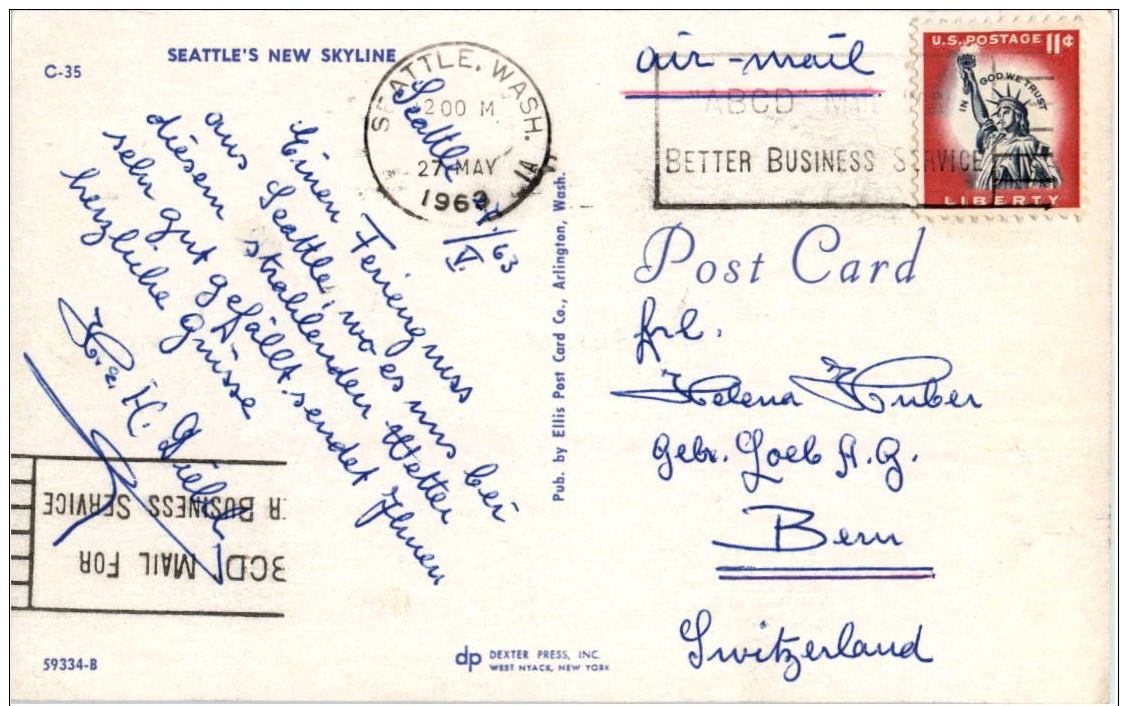 C-35
SEATTLE'S NEW SKYLINE
SEATTLE, WASH.
200 M
27 MAY
1963
1A
Seattle
V./63
Einen Feriengruss
aus Seattle, wo es uns bei
diesem strahlenden Wetter
sehr gut gefällt, sendet Ihnen
herzliche Grüsse
H.
R BUSINESS SERVICE
BCD" MAIL FOR
59334-B
Pub. by Ellis Post Card Co., Arlington, Wash.
dp DEXTER PRESS, INC.
WEST NYACK, NEW YORK
air-mail
"ABCD" MAIL
BETTER BUSINESS SERVICE
U.S. POSTAGE 11¢
IN GOD WE TRUST
LIBERTY
Post Card
Frl.
Helena Huber
Gebr. Loeb A.G.
Bern
Switzerland